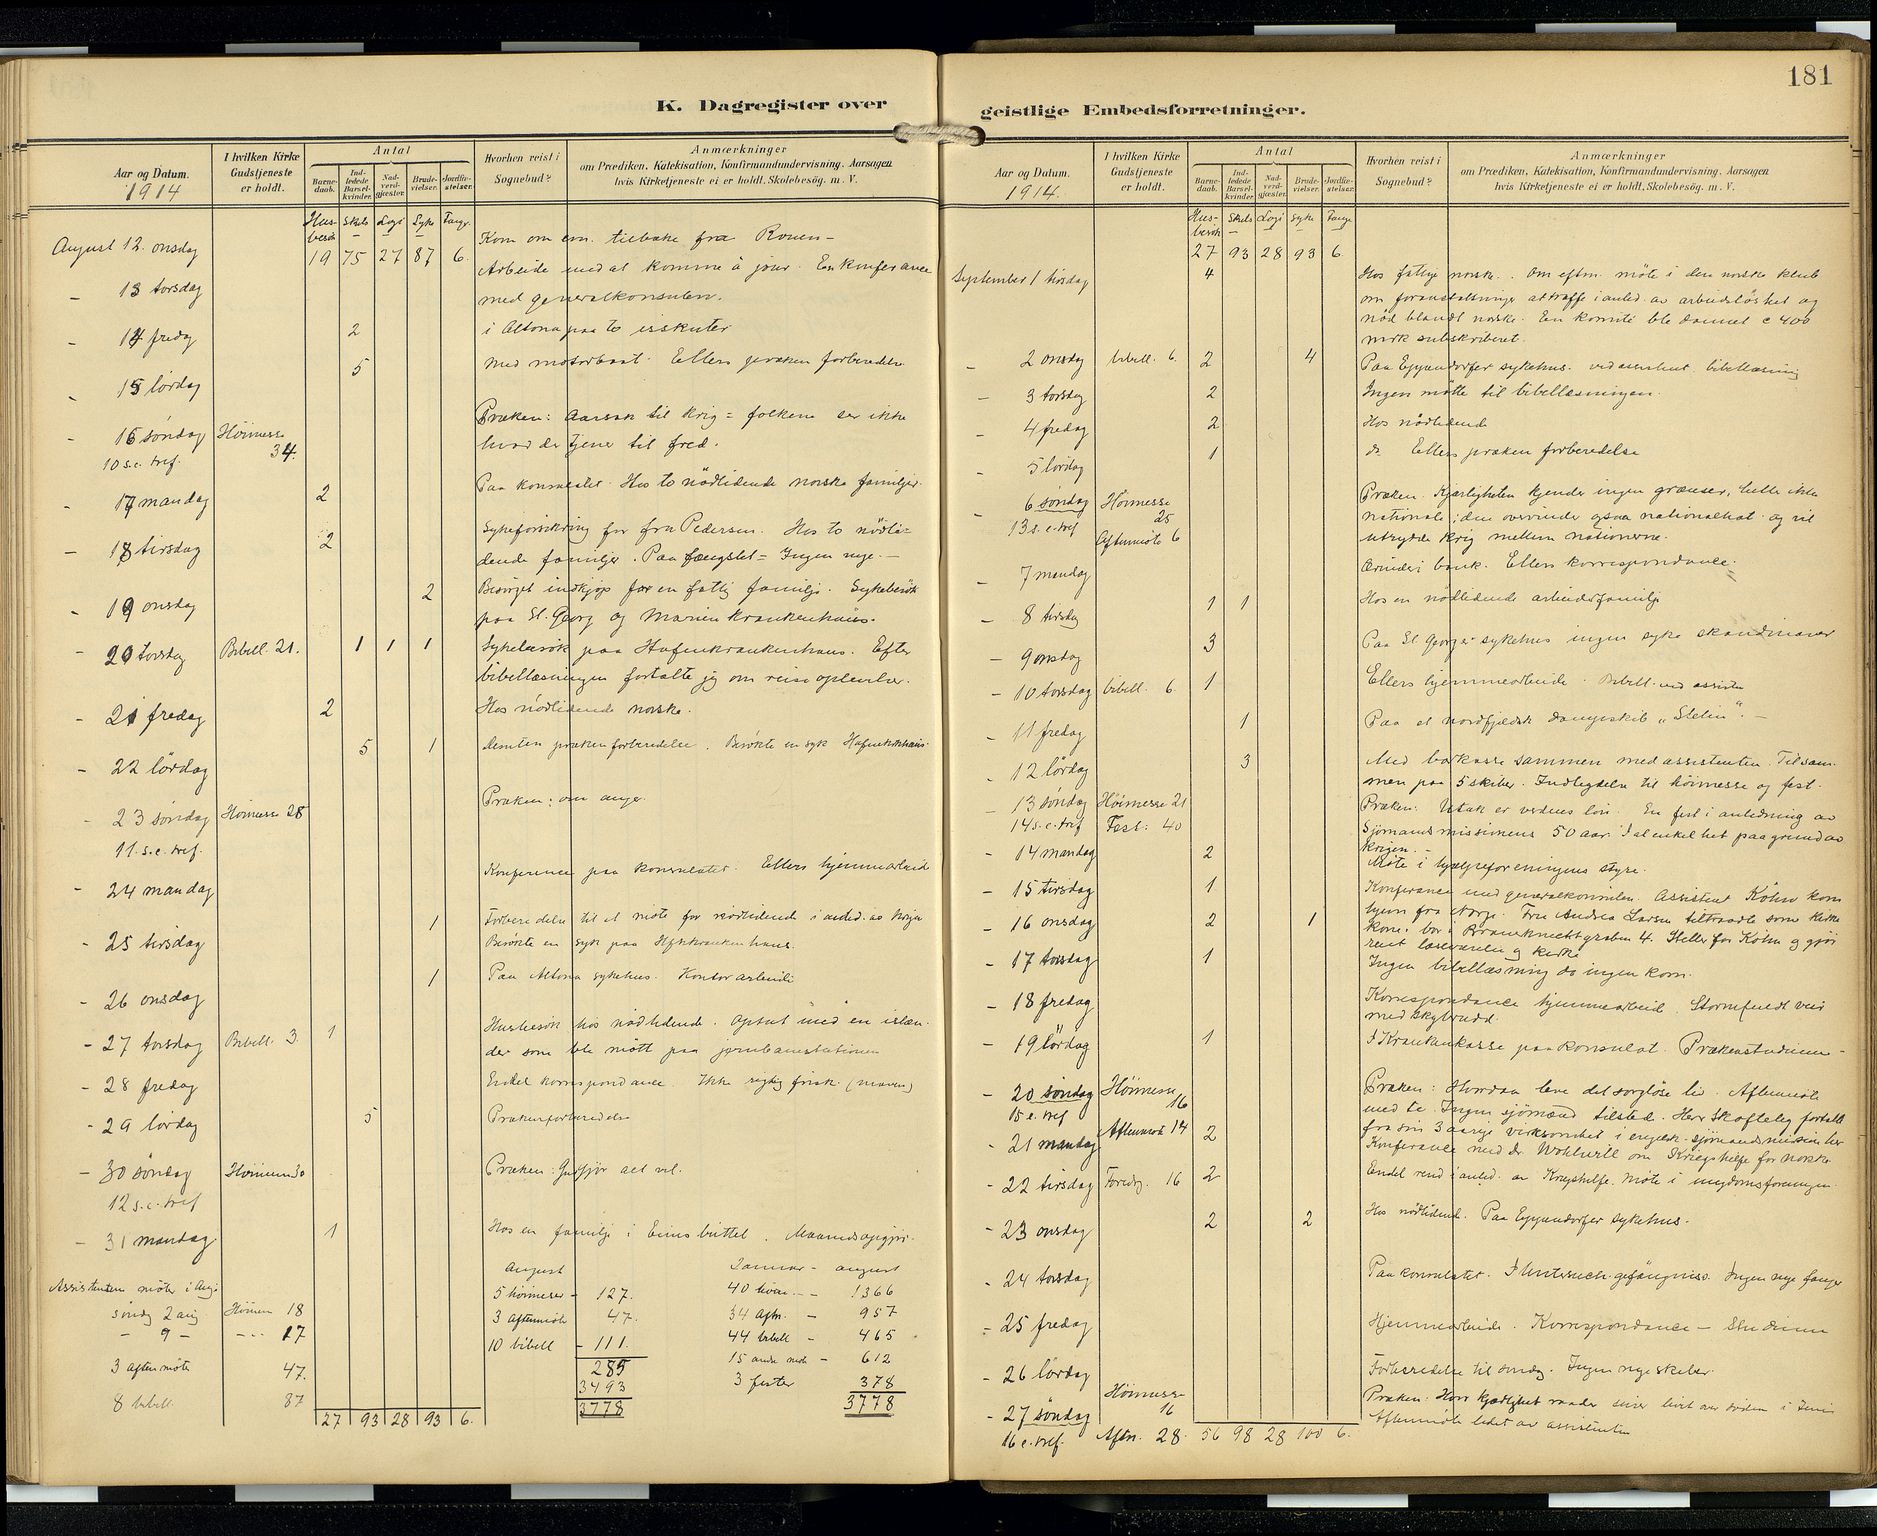 181
K. Dagregister over
geistlige Embedsforretninger.
Aar og Datum.
1914
I hvilken Kirke Gudstjeneste er holdt.
Antal
Barne-daab.
Ind-ledede Barsel-kvinder.
Nad-verd-gjester.
Brude-vielser.
Jordfæ-stelser.
Hvorhen reist i Sognebud?
Anmærkninger
om Prædiken. Katekisation, Konfirmandundervisning. Aarsagen
hvis Kirketjeneste ei er holdt. Skolebesøg. m. V.
Hus-besök Skibs Logi Syke Fange
19 75 27 87 6.
August 12. onsdag Kom om em. tilbake fra Rouen –
Arbeide med at komme à jour. En konferance
– 13 torsdag med generalkonsulen.
– 14 fredag 2 i Altona paa to isskuter
– 15 lørdag 5 med motorbaat. Ellers præken forberedelse
– 16 søndag Höimesse 34. Præken: Aarsak til krig = folkene ser ikke
10 s.e. tref. hvad der tjener til fred.
– 17 mandag 2 Paa konsulatet. Hos to nödlidende norske familjer.
– 18 tirsdag 2 Sykeforsikring for fru Pedersen. Hos to nödli-
dende familjer. Paa fængslet = Ingen nye. –
– 19 onsdag 2 Besörget indkjöp for en fattig familje. Sykebesök
paa St. Georg og Marienkrankenhaus.
– 20 torsdag Bibell. 21. 1 1 1 Sykebesök paa Hafenkrankenhaus. Efter
bibellæsningen fortalte jeg om reiseoplevelser.
– 21 fredag 2 Hos nödlidende norske.
– 22 lørdag 5 1 Desuten prækenforberedelse. Besökte en syk
– 23 søndag Höimesse 28 Præken: om anger.
11. s.e. tref.
– 24 mandag Konference paa konsulatet. Ellers hjemmearbeid
– 25 tirsdag 1 Forberedelse til et möte for nödlidende i anled. av krigen
Besökte en syk paa
– 26 onsdag 1 Paa Altona sykehus. Kontorarbeide
– 27 torsdag Bibell. 3. 1 Husbesök hos nödlidende. Optat med en islæn-
der som ble mött paa jernbanestationen
– 28 fredag Endel korrespondance. Ikke rigtig frisk. (maven)
– 29 lørdag 5 Prækenforberedelse
– 30 søndag Höimesse 30 Præken: Gud gjör alt vel.
12 s.e. tref
– 31 mandag. 1 Hos en familje i Eimsbüttel. Maanedsopgjör.
Assistenten möter i Aug:
söndag 2 aug Höimes 18
– 9 – – 17
3 Aftenmöte 47.
8 bibell. 87
August
5 höimesser – 127.
3 Aftenmöte 47.
10 bibell – 111.
285
3493
3778
Januar – august
40 höim. – 1366
34 Aftn. – 957
44 bibell – 465
15 andre möte – 612
3 fester 378
3778
27 93 28 93 6.
Aar og Datum.
1914.
I hvilken Kirke Gudstjeneste er holdt.
Antal
Barne-daab.
Ind-ledede Barsel-kvinder.
Nad-verd-gjester.
Brude-vielser.
Jordfæ-stelser.
Hvorhen reist i Sognebud?
Anmærkninger
om Prædiken. Katekisation, Konfirmandundervisning. Aarsagen
hvis Kirketjeneste ei er holdt. Skolebesøg. m. V.
Hus-besök Skibs Logi Syke Fange
27 93 28 93 6
September 1 tirsdag 4 Hos fattige norske. Om eftm. möte i den norske klub
om foranstaltninger at træffe i anled. av arbeidslöshet og
nöd blandt norske. En komité ble dannet c 400
mark subskriberet.
– 2 onsdag bibell. 6. 2 4 Paa Eppendorfer sykehus. ved assistent. bibellæsning
– 3 torsdag 2 Ingen mötte til bibellæsningen.
– 4 fredag 2 Hos nödlidende
– 5 lördag 1 do Ellers præken forberedelse
– 6 søndag Höimesse 25 Præken. Kjærligheten kjender ingen grænser, heller ikke
13. s.e. tref nationale; den overvinder ogsaa nationalhat og vil
Aftenmöte 6 utrydde krig mellem nationerne.
– 7 mandag Ærinder i bank. Ellers korrespondance.
– 8 tirsdag 1 1 Hos en nödlidende arbeiderfamilje
– 9 onsdag 3 Paa St. Georgs sykehus ingen syke skandinaver
– 10 torsdag bibell. 6. 1 Ellers hjemmearbeide. Bibell. ved assisten
– 11 fredag 1 Paa et nordfjordsk dampskib „Stein“. –
– 12 lördag 3 Med barkasse sammen med assistenten. Tilsam-
men paa 5 skiber. Indbydelse til höimesse og fest.
– 13 søndag Höimesse 21 Præken: Utak er verdens lön. En fest i anledning av
14 s.e. tref Fest: 40 Sjömandsmissionens 50 aar. I al enkelhet paa grund av
krigen. –
– 14 mandag 2 Möte i hjælpeforeningens styre.
– 15 tirsdag 1 Konferance med generalkonsulen. Assistent Köhn kom
– 16 onsdag 2 1 hjem fra Norge. Fru Andrea Larsen tiltraadte som kirke
kone: bor i Brauerknechtgraben 4. Steller for Köhn og gjör
– 17 torsdag 1 rent læseværelse og kirke
Ingen bibellæsning da ingen kom.
– 18 fredag Korrespondance hjemmearbeid. Stormfuldt veir
med skybrudd.
– 19 lördag 1 I Krankenkasse paa konsulat. Prækenstudium –
– 20 søndag Höimesse 16 Præken: Hvordan leve det sorglöse liv. Aftenmöte
15 e. tref med te. Ingen sjömænd tilsted. Herr Skoftelig fortalt
Aftenmöte 14 fra sin 3 aarige virksomhet i engelsk sjömandsmission her
– 21 mandag 2 Konferance med dr. Wohlwill om Krigshilfe for norske
– 22 tirsdag Foredg. 16 2 Endel rend i anled. av Krigshilfe. Möte i ungdomsforeningen.
– 23 onsdag 2 2 Hos nödlidend. Paa Eppendorfer sykehus.
– 24 torsdag Paa konsulatet. I Untersuch.gefängniss. Ingen nye fanger
– 25 fredag Hjemmearbeide. Korrespondance – Studium
– 26 lördag Forberedelse til söndag. Ingen nye skiber.
– 27 søndag Höimesse 16 Præken: Hvor kjærlighet raader seirer livet over döden i
16 e. tref. Aftn. 28. Aftenmöte ledet av assistenten
56 98 28 100 6.